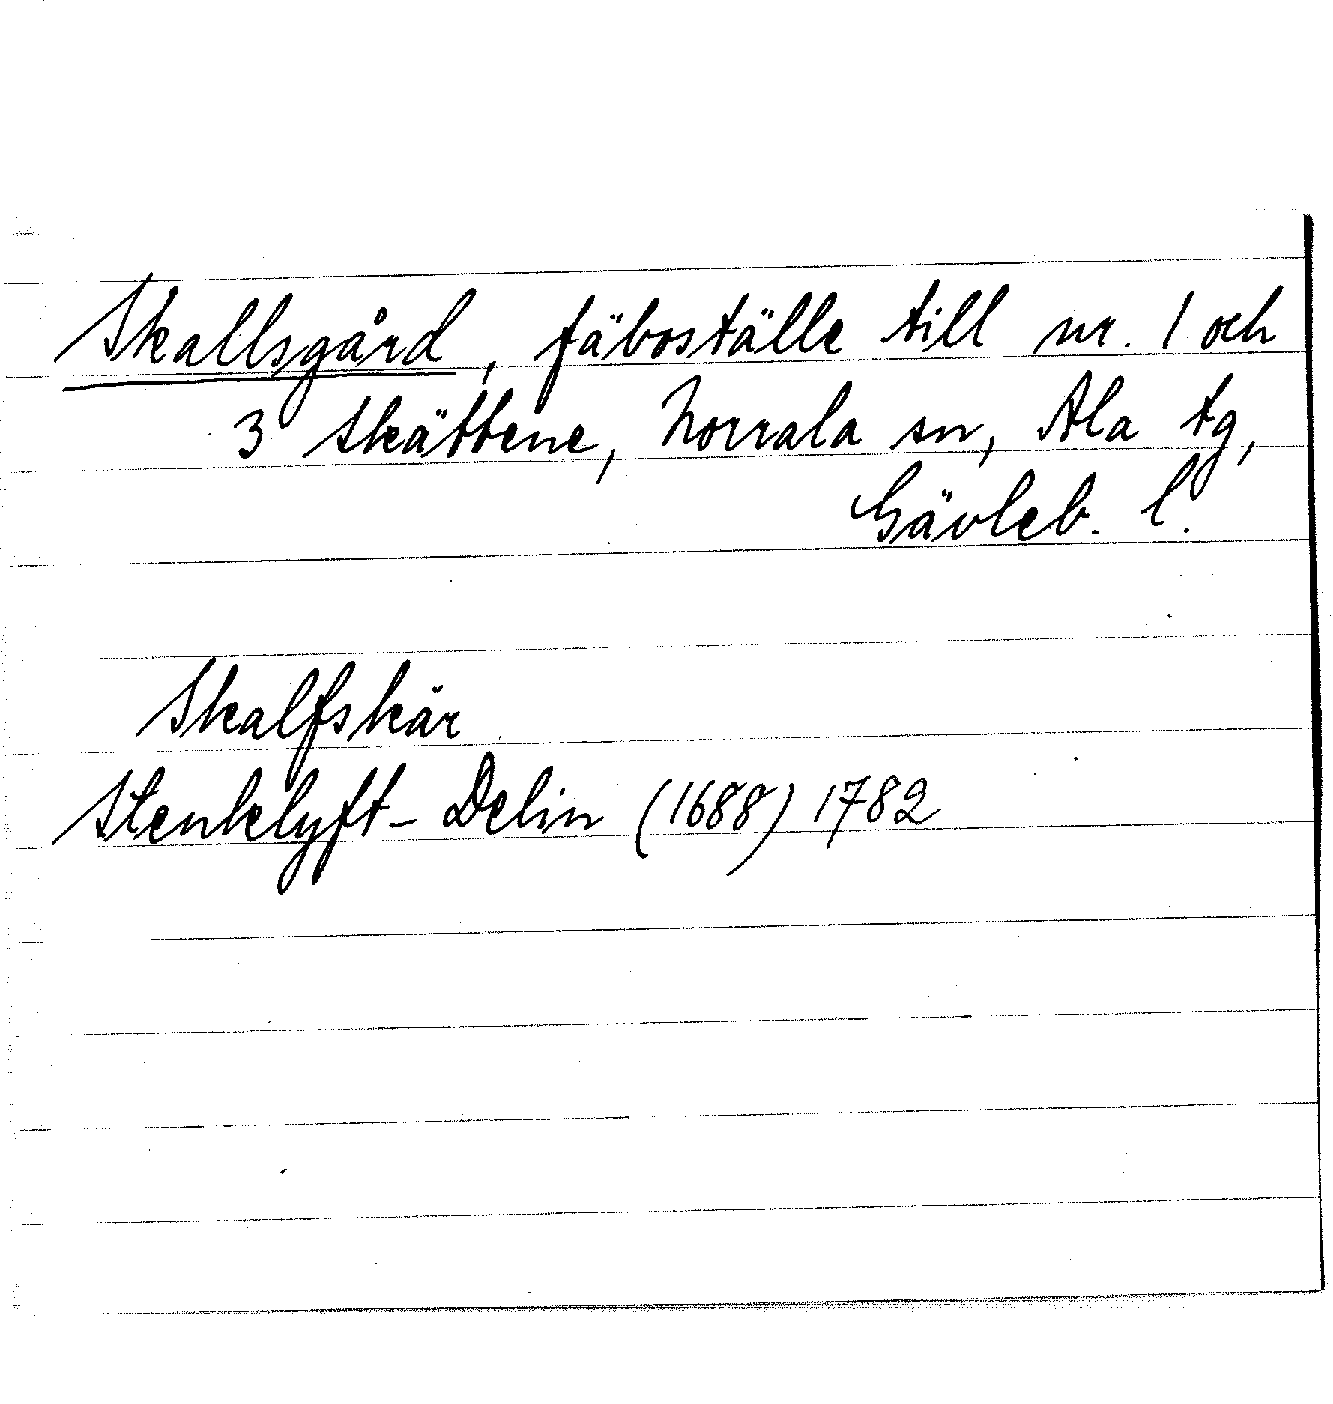 Skallsgård, fäboställe till nr. 1 och
3 Skättene, Norrala sn, Ala tg,
Gävleb. l.
Skalfskär
Stenklyft - Delin (1688) 1782